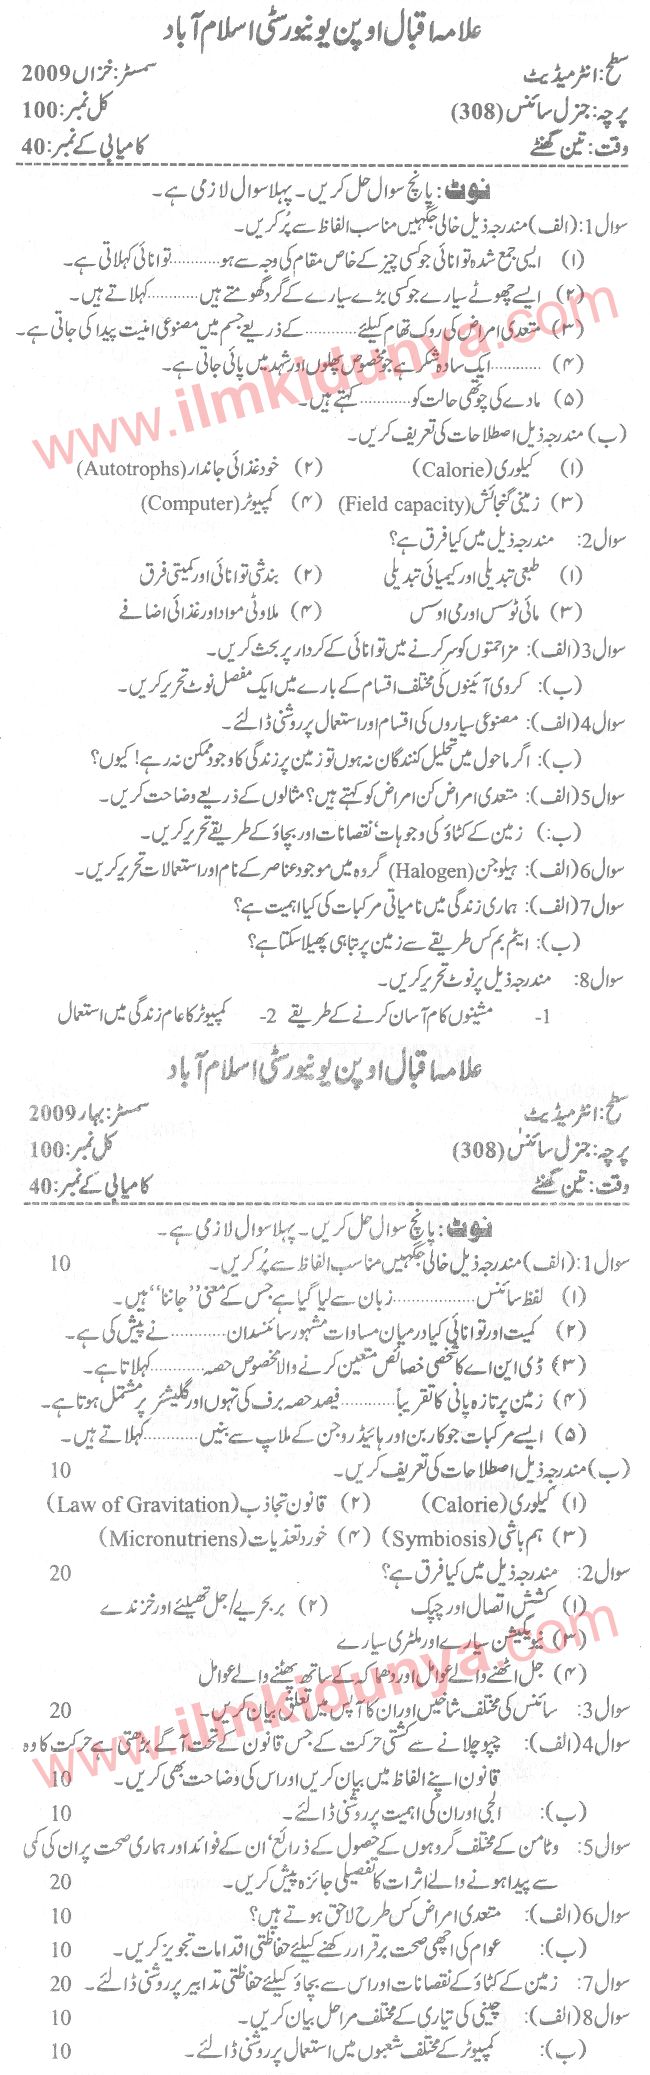 علامہ اقبال اوپن یونیورسٹی اسلام آباد
سطح: انٹرمیڈیٹ سمسٹر: خزاں 2009
پرچہ: جنرل سائنس (308) کل نمبر: 100
وقت: تین گھنٹے کامیابی کے نمبر: 40
نوٹ: پانچ سوال حل کریں۔ پہلا سوال لازمی ہے۔
سوال 1: (الف) مندرجہ ذیل خالی جگہیں مناسب الفاظ سے پُر کریں۔
(۱) ایسی جمع شدہ توانائی جو کسی چیز کے خاص مقام کی وجہ سے ہو............توانائی کہلاتی ہے۔
(۲) ایسے چھوٹے سیارے جو کسی بڑے سیارے کے گرد گھومتے ہیں............کہلاتے ہیں۔
(۳) متعدی امراض کی روک تھام کیلئے............کے ذریعے جسم میں مصنوعی امنیت پیدا کی جاتی ہے۔
(۴) ............ایک سادہ شکر ہے جو مخصوص پھلوں اور شہد میں پائی جاتی ہے۔
(۵) مادے کی چوتھی حالت کو............کہتے ہیں۔
(ب) مندرجہ ذیل اصطلاحات کی تعریف کریں۔
(۱) کیلوری (Calorie) (۲) خود غذائی جاندار (Autotrophs)
(۳) زمینی گنجائش (Field capacity) (۴) کمپیوٹر (Computer)
سوال 2: مندرجہ ذیل میں کیا فرق ہے؟
(۱) طبعی تبدیلی اور کیمیائی تبدیلی (۲) بندشی توانائی اور کمیتی فرق
(۳) مائی ٹوسس اور می اوسس (۴) ملاوٹی مواد اور غذائی اضافے
سوال 3 (الف): مزاحمتوں کو سر کرنے میں توانائی کے کردار پر بحث کریں۔
(ب): کروی آئینوں کی مختلف اقسام کے بارے میں ایک مفصل نوٹ تحریر کریں۔
سوال 4 (الف): مصنوعی سیاروں کی اقسام اور استعمال پر روشنی ڈالئے۔
(ب): اگر ماحول میں تحلیل کنندگان نہ ہوں تو زمین پر زندگی کا وجود ممکن نہ رہے! کیوں؟
سوال 5 (الف): متعدی امراض کن امراض کو کہتے ہیں؟ مثالوں کے ذریعے وضاحت کریں۔
(ب:) زمین کے کٹاؤ کی وجوہات، نقصانات اور بچاؤ کے طریقے تحریر کریں۔
سوال 6 (الف): ہیلوجن (Halogen) گروہ میں موجود عناصر کے نام اور استعمالات تحریر کریں۔
سوال 7 (الف): ہماری زندگی میں نامیاتی مرکبات کی کیا اہمیت ہے؟
(ب): ایٹم بم کس طریقے سے زمین پر تباہی پھیلا سکتا ہے؟
سوال 8: مندرجہ ذیل پر نوٹ تحریر کریں۔
1- مشینوں کام آسان کرنے کے طریقے 2- کمپیوٹر کا عام زندگی میں استعمال
علامہ اقبال اوپن یونیورسٹی اسلام آباد
سطح: انٹرمیڈیٹ سمسٹر: بہار 2009
پرچہ: جنرل سائنس (308) کل نمبر: 100
وقت: تین گھنٹے کامیابی کے نمبر: 40
نوٹ: پانچ سوال حل کریں۔ پہلا سوال لازمی ہے۔
سوال 1: (الف) مندرجہ ذیل خالی جگہیں مناسب الفاظ سے پُر کریں۔ 10
(۱) لفظ سائنس..................زبان سے لیا گیا ہے جس کے معنی "جاننا" ہیں۔
(۲) کمیت اور توانائی کیا درمیان مساوات مشہور سائنسدان............نے پیش کی ہے۔
(۳) ڈی این اے کا شخصی خصائص متعین کرنے والا مخصوص حصہ............کہلاتا ہے۔
(۴) زمین پر تازہ پانی کا تقریباً............فیصد حصہ برف کی تہوں اور گلیشئر پر مشتمل ہوتا ہے۔
(۵) ایسے مرکبات جو کاربن اور ہائیڈروجن کے ملاپ سے بنیں............کہلاتے ہیں۔
(ب) مندرجہ ذیل اصطلاحات کی تعریف کریں۔ 10
(۱) کیلوری (Calorie) (۲) قانون تجاذب (Law of Gravitation)
(۳) ہم باشی (Symbiosis) (۴) خورد تغذیات (Micronutriens)
سوال 2: مندرجہ ذیل میں کیا فرق ہے؟ 20
(۱) کشش اتصال اور چپک (۲) بر بحریے/جل تھیلئے اور خزندے
(۳) نیویگیشن سیارے اور ملٹری سیارے
(۴) جل اٹھنے والے عوامل اور دھماکہ کے ساتھ پھٹنے والے عوامل
سوال 3: سائنس کی مختلف شاخیں اور ان کا آپس میں تعلق بیان کریں۔ 20
سوال 4 (الف): چپو چلانے سے کشتی حرکت کے جس قانون کے تحت آگے بڑھتی ہے حرکت کا وہ
قانون اپنے الفاظ میں بیان کریں اور اس کی وضاحت بھی کریں۔ 10
(ب): الجی اور ان کی اہمیت پر روشنی ڈالئے۔ 10
سوال 5: وٹامن کے مختلف گروہوں کے حصول کے ذرائع، ان کے فوائد اور ہماری صحت پر ان کی کمی
سے پیدا ہونے والے اثرات کا تفصیلی جائزہ پیش کریں۔ 20
سوال 6 (الف): متعدی امراض کس طرح لاحق ہوتے ہیں؟ 10
(ب): عوام کی اچھی صحت برقرار رکھنے کیلئے حفاظتی اقدامات تجویز کریں۔ 10
سوال 7: زمین کے کٹاؤ کے نقصانات اور اس سے بچاؤ کیلئے حفاظتی تدابیر پر روشنی ڈالئے۔ 20
سوال 8 (الف): چینی کی تیاری کے مختلف مراحل بیان کریں۔ 10
(ب): کمپیوٹر کے مختلف شعبوں میں استعمال پر روشنی ڈالئے۔ 10
www.ilmkidunya.com
www.ilmkidunya.com